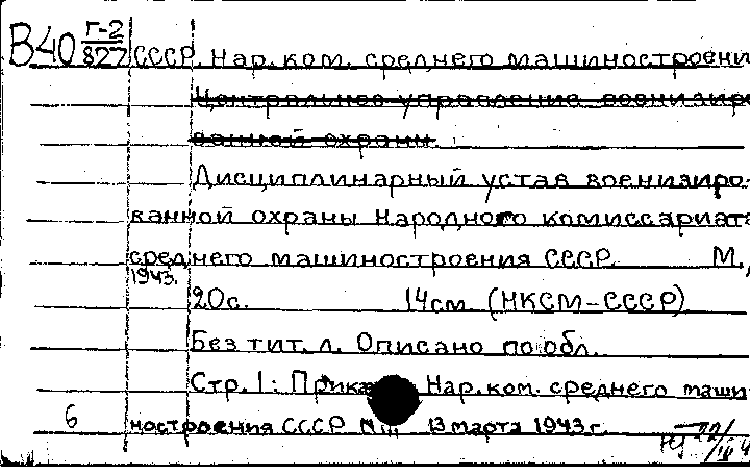 В40 Г-2/827 СССР. Нар. ком. среднего машиностроени
Центральное управление военизиро
ванной охраны
Дисциплинарный устав военизиро-
ванной охраны Народного комиссариата
среднего машиностроения СССР. М.,
1943.
20 с. 14 см. (НКСМ-СССР)
Без тит. л. Описано по обл.
Стр. 1: Приказ Нар. ком. среднего маши-
6 ностроения СССР 13 марта 1943 г.